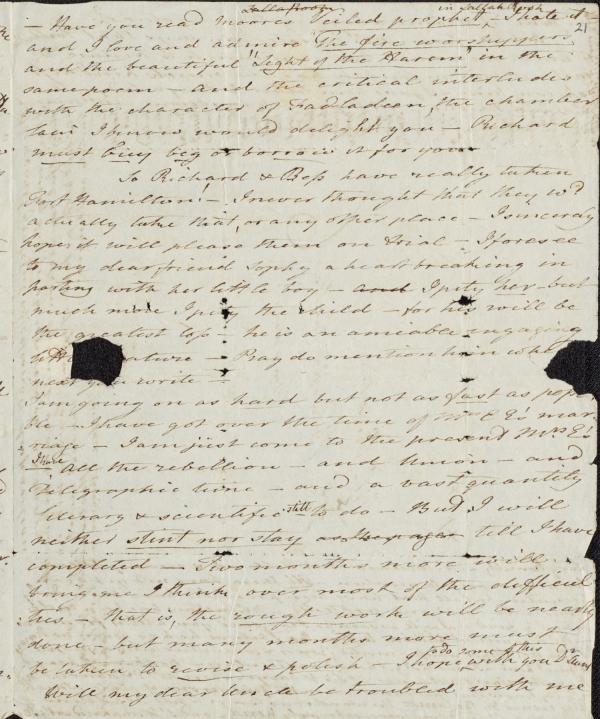 Lalla Rookh in Lallah Rookh
21
– Have you read Moores veiled prophet – I hate it –
and I love and admire The fire worshippers
and the beautiful "Light of the Haram" in the
same poem – and the critical interludes
with the character of Fadladeen, the chamber
lain I know would delight you – Richard
must buy beg or borrow it for you –
So Richard & Bess have really taken
Port Hamilton! – I never thought that they wd.
actually take that, or any other place – I sincerely
hope it will please them on trial – I foresee
to my dear friend Sophy a heartbreaking in
parting with her little boy – and I pity her but
much more I pity the child – for his will be
the greatest loss – he is an amiable engaging
little nature – Pray do mention him when
next you write –
I am going on as hard but not as fast as possi
ble – I have got over the time of Mrs E E's mar
riage – I am just come to the present Mrs E's
I have
– all the rebellion – and Union – and
Telegraphic time – and a vast quantity
literary & scientific still to do – But I will
neither stint nor stay till I have
completed – Two months more will
bring me I think over most of the difficul
ties – that is, the rough work will be nearly
done – but many months more must
be taken to revise & polish – I hope to do some of this with you
Will my dear Uncle be troubled with me